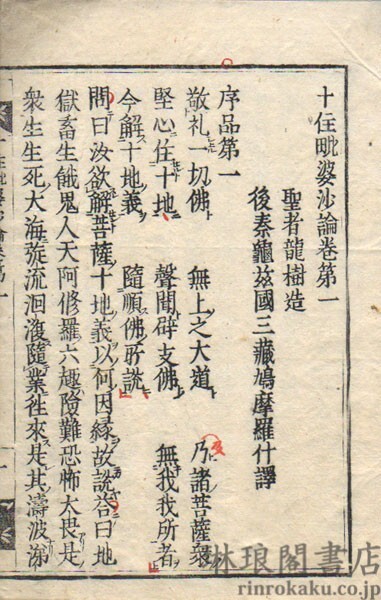 十住毗婆沙論卷第一
聖者龍樹造
後秦龜茲國三藏鳩摩羅什譯
序品第一
敬礼一切佛　無上之大道　乃諸菩薩衆
堅心住十地　聲聞辟支佛　無我我所者
今解十地義　隨順佛所說
問曰汝欲解菩薩十地義以何因緣故說荅曰地
獄畜生餓鬼人天阿修羅六趣險難恐怖大畏是
衆生生死大海旋流洄澓隨業徃來是其濤波涕
及
林琅閣書店
rinrokaku.co.jp